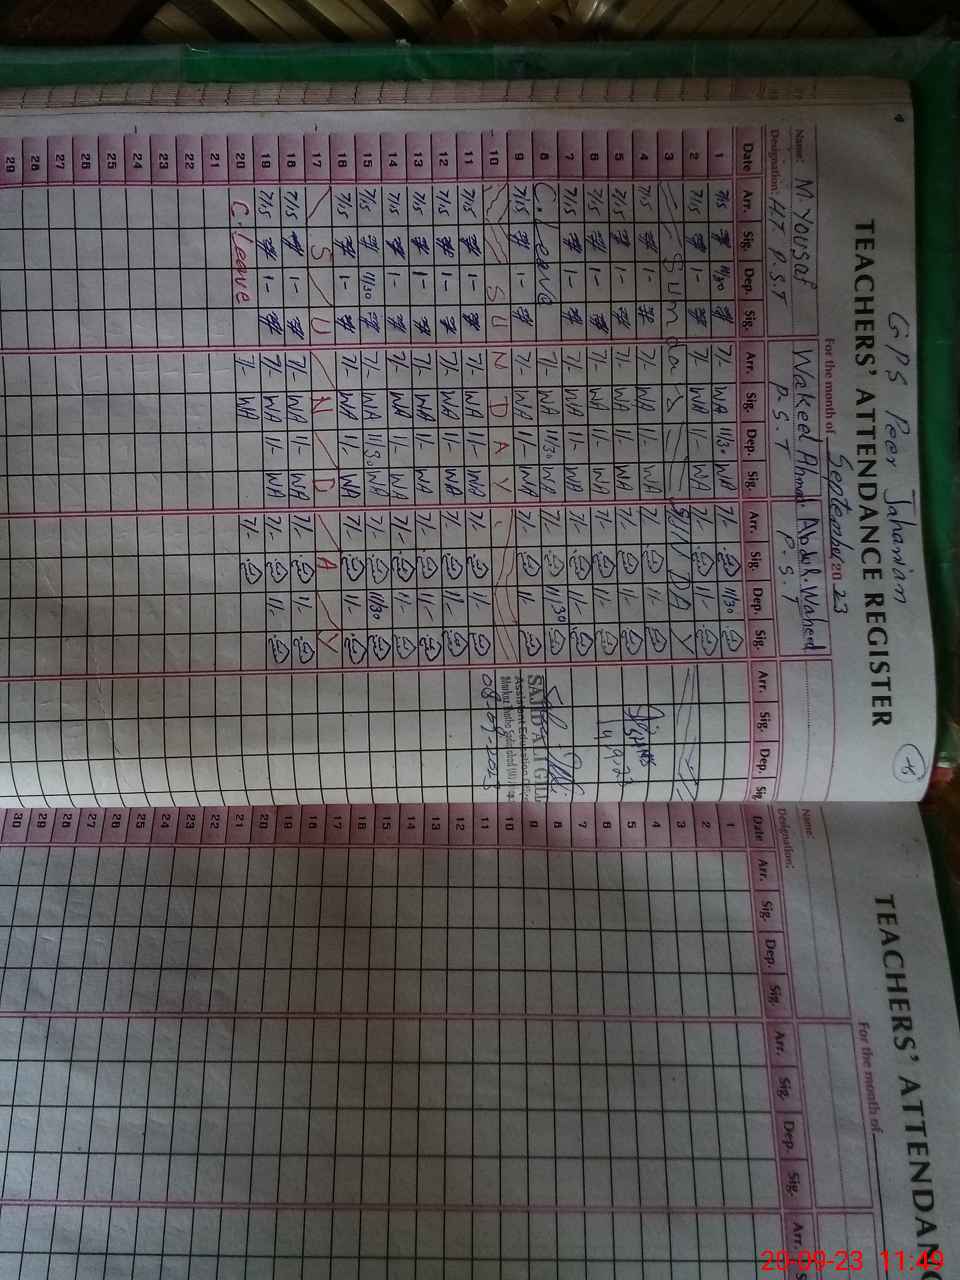 GPS Peer Jahanian
TEACHERS' ATTENDANCE REGISTER
For the month of September 2023
Name: M. Yousaf Wakeel Ahmad Abdul Waheed
Designation: H.T P.S.T P.S.T P.S.T
Date Arr. Sig. Dep. Sig. Arr. Sig. Dep. Sig. Arr. Sig. Dep. Sig. Arr. Sig. Dep. Sig.
1 7/15 11/30 7/- WA 11/30 WA 7/- 11/30
2 7/15 1- 7/- WA 1/- WA 7/- 1/-
3 Sunday SUNDAY
4 7/15 1- 7/- WA 1/- WA 7/- 1/-
5 7/15 1- 7/- WA 1/- WA 7/- 1/-
6 7/15 1- 7/- WA 1/- WA 7/- 1/-
7 7/15 1- 7/- WA 1/- WA 7/- 1/-
8 C. Leave 7/- WA 11/30 WA 7/- 11/30
9 7/15 1- 7/- WA 1/- WA 7/- 1/-
SAJID ALI GILL
Assistant Education Officer
10 SUNDAY
11 7/15 1- 7/- WA 1/- WA 7/- 1/-
12 7/15 1- 7/- WA 1/- WA 7/- 1/-
13 7/15 1- 7/- WA 1/- WA 7/- 1/-
14 7/15 1- 7/- WA 1/- WA 7/- 1/-
15 7/15 11/30 7/- WA 11/30 WA 7/- 11/30
16 7/15 1- 7/- WA 1/- WA 7/- 1/-
17 SUNDAY
18 7/15 1- 7/- WA 1/- WA 7/- 1/-
19 7/15 1- 7/- WA 1/- WA 7/- 1/-
20 C. Leave 7/- WA 7/-
21
22
23
24
25
26
27
28
29
TEACHERS' ATTENDANC
For the month of
Name:
Designation:
Date Arr. Sig. Dep. Sig. Arr. Sig. Dep. Sig. Arr. S
1
2
3
4
5
6
7
8
9
10
11
12
13
14
15
16
17
18
19
20
21
22
23
24
25
26
27
28
29
30
20-09-23 11:49